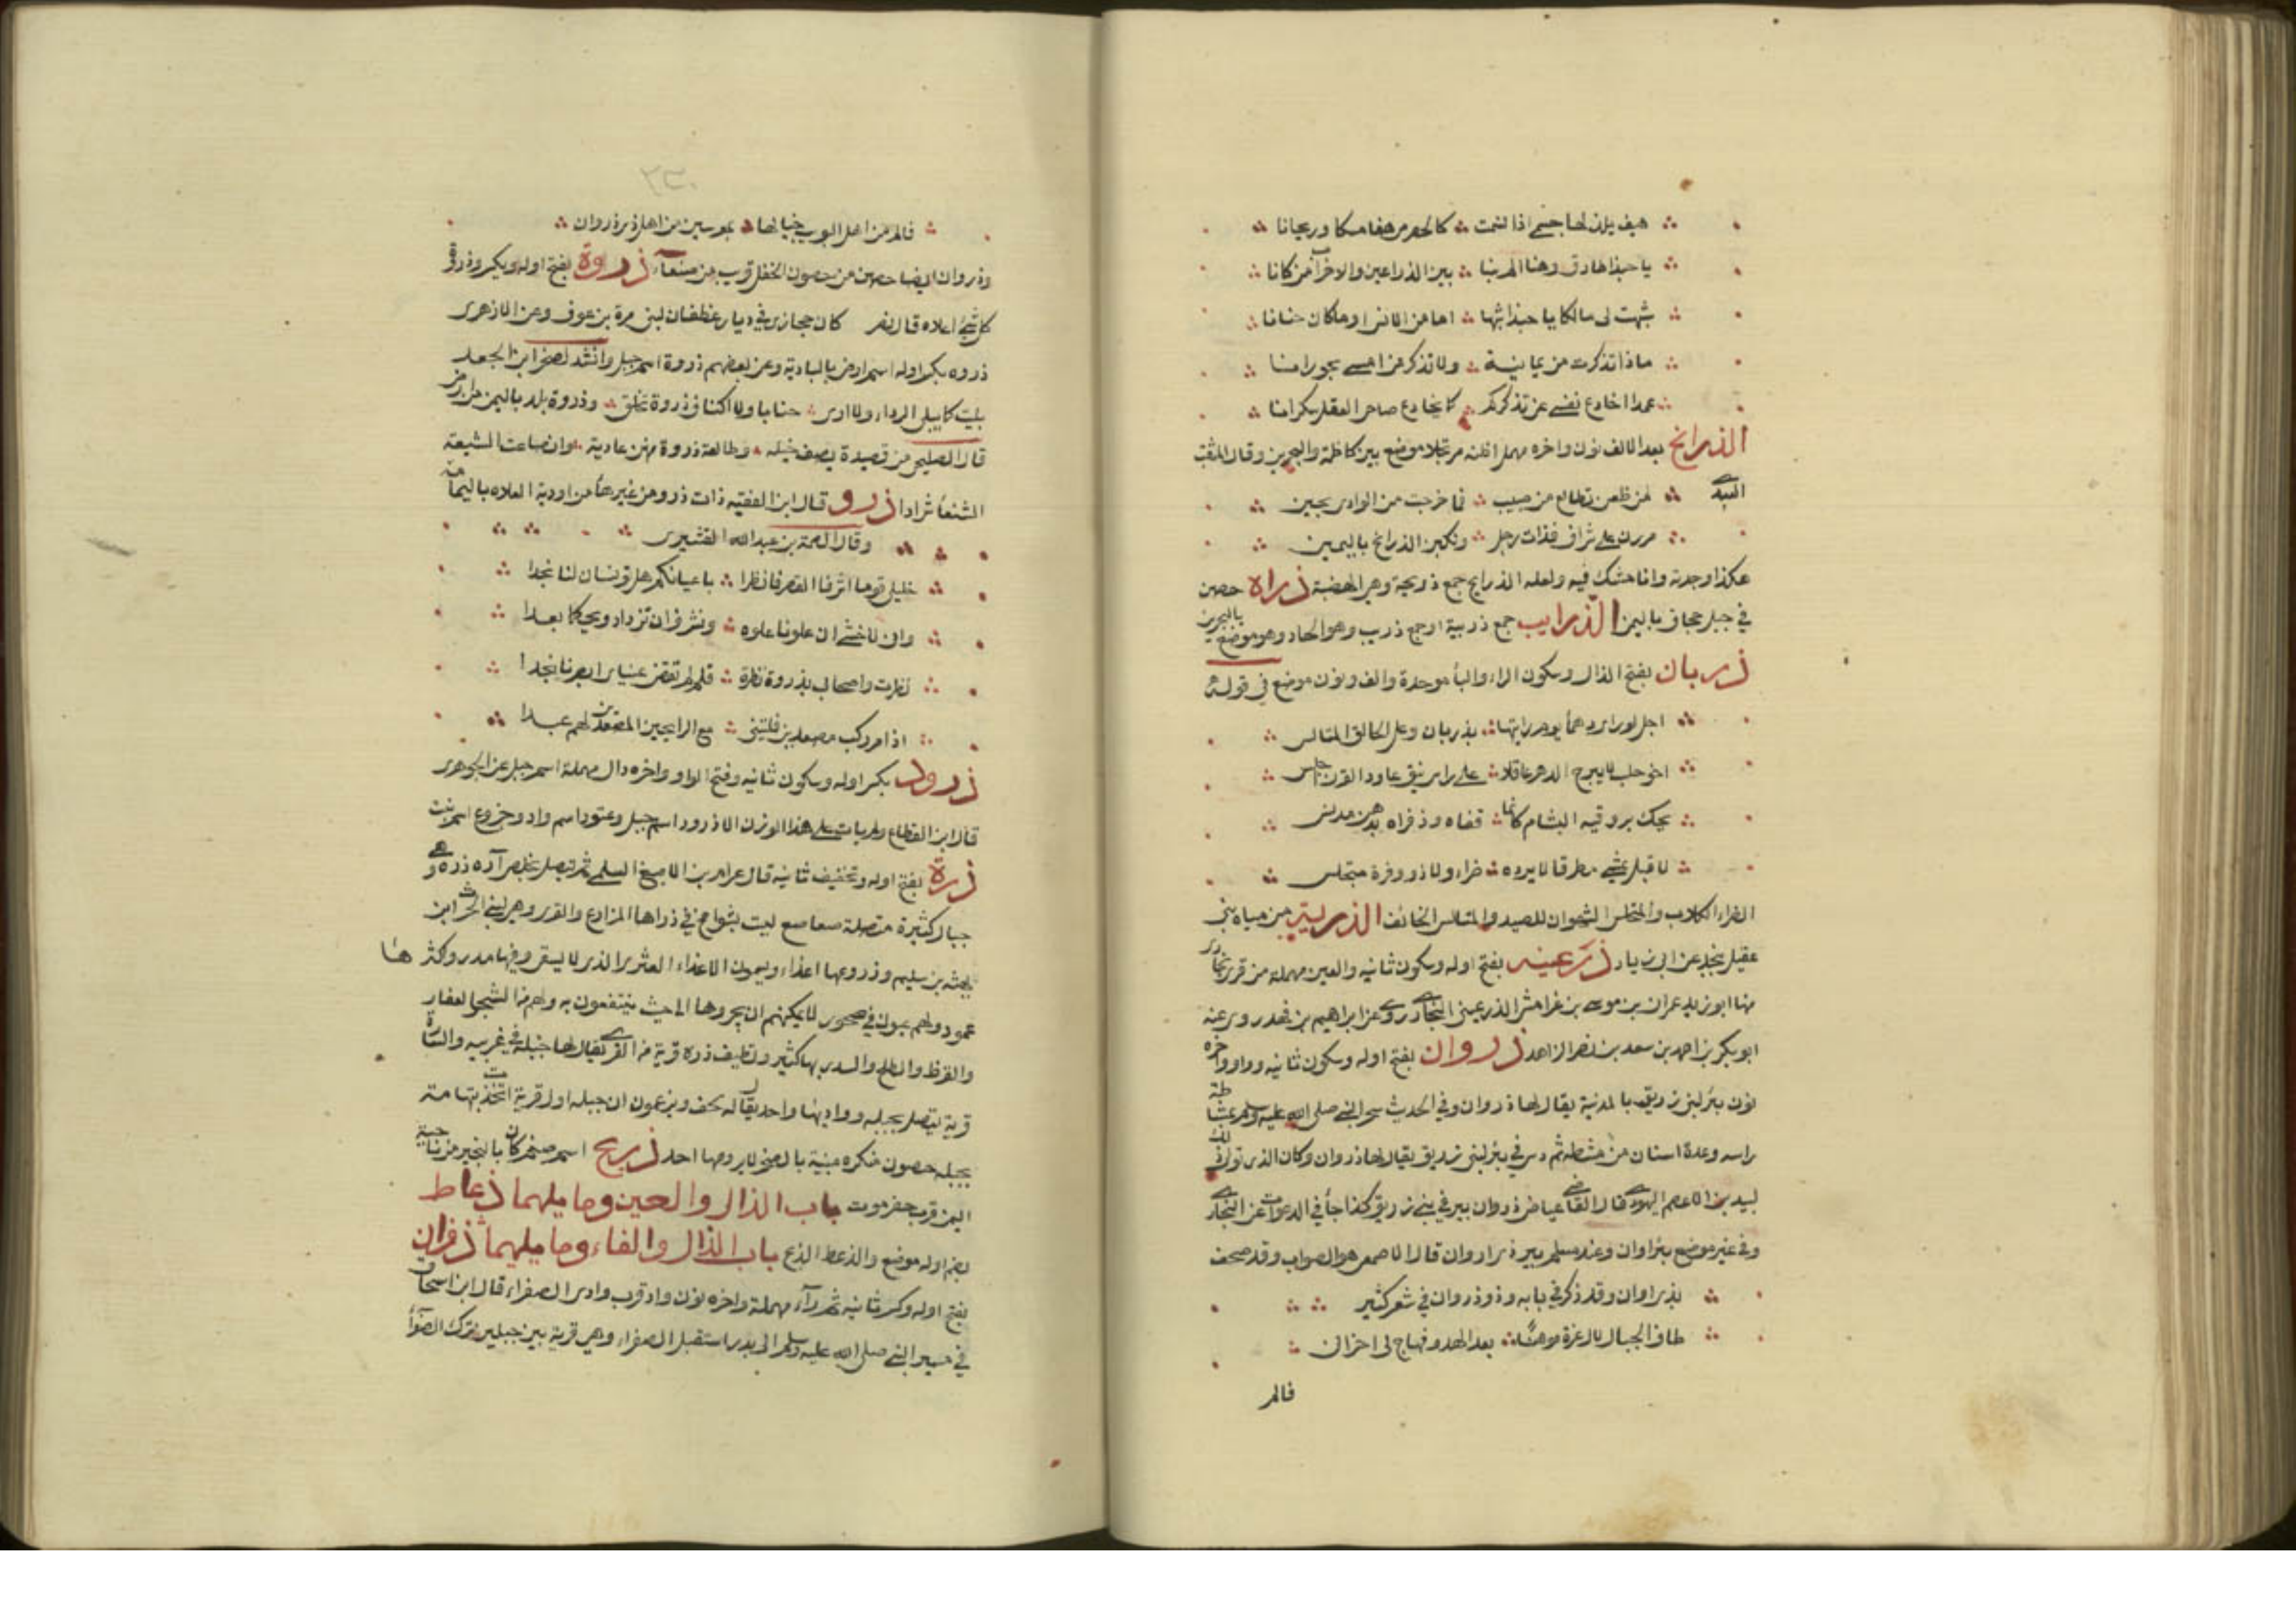 هيف يلذ لها جسمي اذا نسمت كالحضرمي هفا مسكا وريحانا
يا حبذا طارق وهنا الم بنا بين الذراعين والاخراب من كانا
شبهت لي مالكا يا حبذا شبها اما من الانس او ما كان جنانا
ماذا تذكرت من يمانية ولا تذكر من امسى بجورانا
عمدا اخادع نفسي عن تذكركم كما يخادع صاحي العقل سكرانا
الذرانح بعد الالف نون واخره مهمل اظنه مرتجلا موضع بين كاظمة والبحرين وقال المثقب
العبدي لمن ظعن تطالع من صبيب فما خرجت من الوادي لحين
مررن على شراف فذات رجل ونكبن الذرانح باليمين
هكذا وجدته وانا مشك فيه ولعله الذرايح جمع ذريحة وهي الهضبة ذراه حصن
في جبل جحاف باليمن الذرايب جمع ذربية او جمع ذريب وهو الحاد وهو موضع بالبحرين
ذربان بفتح الذال وسكون الراء والباء موحدة والف ونون موضع في قوله
اجل لو راى دهماء يوم رايتها بذربان وعل الحالق المتالس
اخو حلب لا يبرح الدهر عاقلا على راس نيق عاود القرن جالس
يحك بروقيه البشام كانما قفاه وذفراه بدهن مدلس
لا قبل يمشي مطرقا لا يرده ضراء ولا ذو وفرة متحلس
الضراء الكلاب والمتحلس الشهوان للصيد والمتالس الخائف الذربية من مياه بني
عقيل بنجد عن ابي زياد ذرعينه بفتح اوله وسكون ثانيه والعين مهملة من قرى بخارى
منها ابو زيد عمران بن موسى بن غرامش الذرعيني البخاري روى عن ابراهيم بن فهد روى عنه
ابو بكر بن احمد بن سعد بن نصر الزاهد ذروان بفتح اوله وسكون ثانيه وواو واخره
نون بئر لبني زريق بالمدينة يقال لها ذروان وفي الحديث سحر النبي صلى الله عليه وسلم بمشاطة
راسه وعدة اسنان من مشطه ثم دس في بئر لبني زريق يقال لها ذروان وكان الذي تولى ذلك
لبيد بن الاعصم اليهودي قال القاضي عياض ذروان بير في بني زريق كذا جاء في الدعوات عن البخاري
وفي غير موضع بئر اوان وعند مسلم بير ذي اروان قال الاصمعي هو الصواب وقد صحف
بذي اوان وقد ذكر في بابه وذو ذروان في شعر كثير
طاف الخيال لال عزة موهنا بعد الهدو فهاج لي احزاني
فالم
٢٣٠
فالم من اهل البويب خيالها بمعرسين من اهل ذي ذروان
وذروان ايضا حصن من حصون الحقل قريب من صنعاء ذروة بفتح اوله ويكسر وذروة
كل شيء اعلاه قال نصر كان حجازي في ديار غطفان لبني مرة بن عوف وعن الازهري
ذروه بكسر اوله اسم ارض بالبادية وعن بعضهم ذروة اسم جبل وانشد لصخر ابن الجعد
بليت كما يبلى الرداء ولا ارى جنابا ولا اكناف ذروة تخلق وذروة بلد باليمن من ارض
قال الصليحي من قصيدة يصف خيله وطالعت ذروة منهن عادية وانصاعت الشيعة
الشنعاء شرادا ذرو قال ابن الفقيه ذات ذرو من غير هاء من اودية العلاه باليمامة
وقال الصمة بن عبد الله القشيري
خليلي قوما اشرفا القصر فانظرا باعيانكم هل تونسان لنا نجدا
واني لاخشى ان علونا علوه ونشرف ان نزداد ويحكما بعدا
نظرت واصحابي بذروة نظرة فلو لم تفض عيناي ابصرتا نجدا
اذا مر ركب مصعدين فليتني مع الرايحين المصعدين لهم عبدا
ذرود بكسر اوله وسكون ثانيه وفتح الواو واخره دال مهملة اسم جبل عن الجوهري
قال ابن القطاع ولم يات على هذا الوزن الا ذرود اسم جبل وعتود اسم واد وخروع اسم نبت
ذرة بفتح اوله وتخفيف ثانيه قال عرام بن الاصبغ السلمي ثم تتصل بخلص آره ذره وهي
جبال كثيرة متصلة ضعاضع ليست بشوامخ في ذراها المزارع والقرى وهي لبني الحرث ابن
بهثه بن سليم وذروعها اعذاء ويسمون الاعذاء العثري الذي لا يسقى وفيها مدر واكثرها
عمود ولهم عيون في صخور لا يمكنهم ان يجروها الى حيث ينتفعون به ولهم من الشجر العفار
والقرظ والطلح والسدر بها كثير وتطيف ذره قرية من القرى يقال لها جبلة في غربيه والستارة
قرية تتصل بجبله وواديهما واحد يقال له لحف ويزعمون ان جبله اول قرية اتخذت بتهامة
بجبله حصون منكره مبنية بالصخر لا يرومها احد ذريح اسم صنم كان بالنجير من ناحية
اليمن قرب حضرموت باب الذال والعين وما يليهما ذعاط
بضم اوله موضع والذعط الذبح باب الذال والفاء وما يليهما ذفران
بفتح اوله وكسر ثانيه ثم راء مهملة واخره نون واد قرب وادي الصفراء قال ابن اسحاق
في مسير النبي صلى الله عليه وسلم الى بدر استقبل الصفراء وهي قرية بين جبلين ترك الصفراء